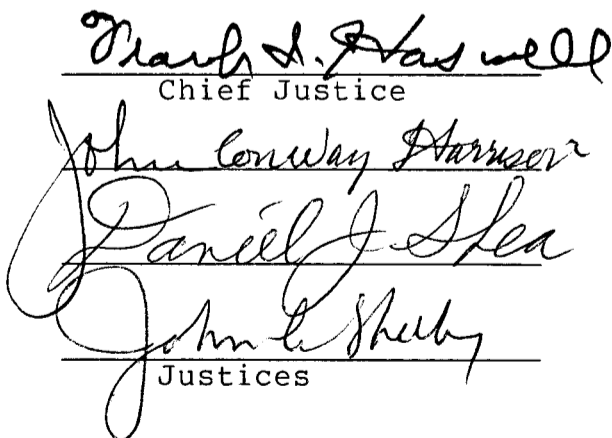 Frank I. Haswell
Chief Justice
John Conway Harrison
Daniel J. Shea
John C. Sheehy
Justices